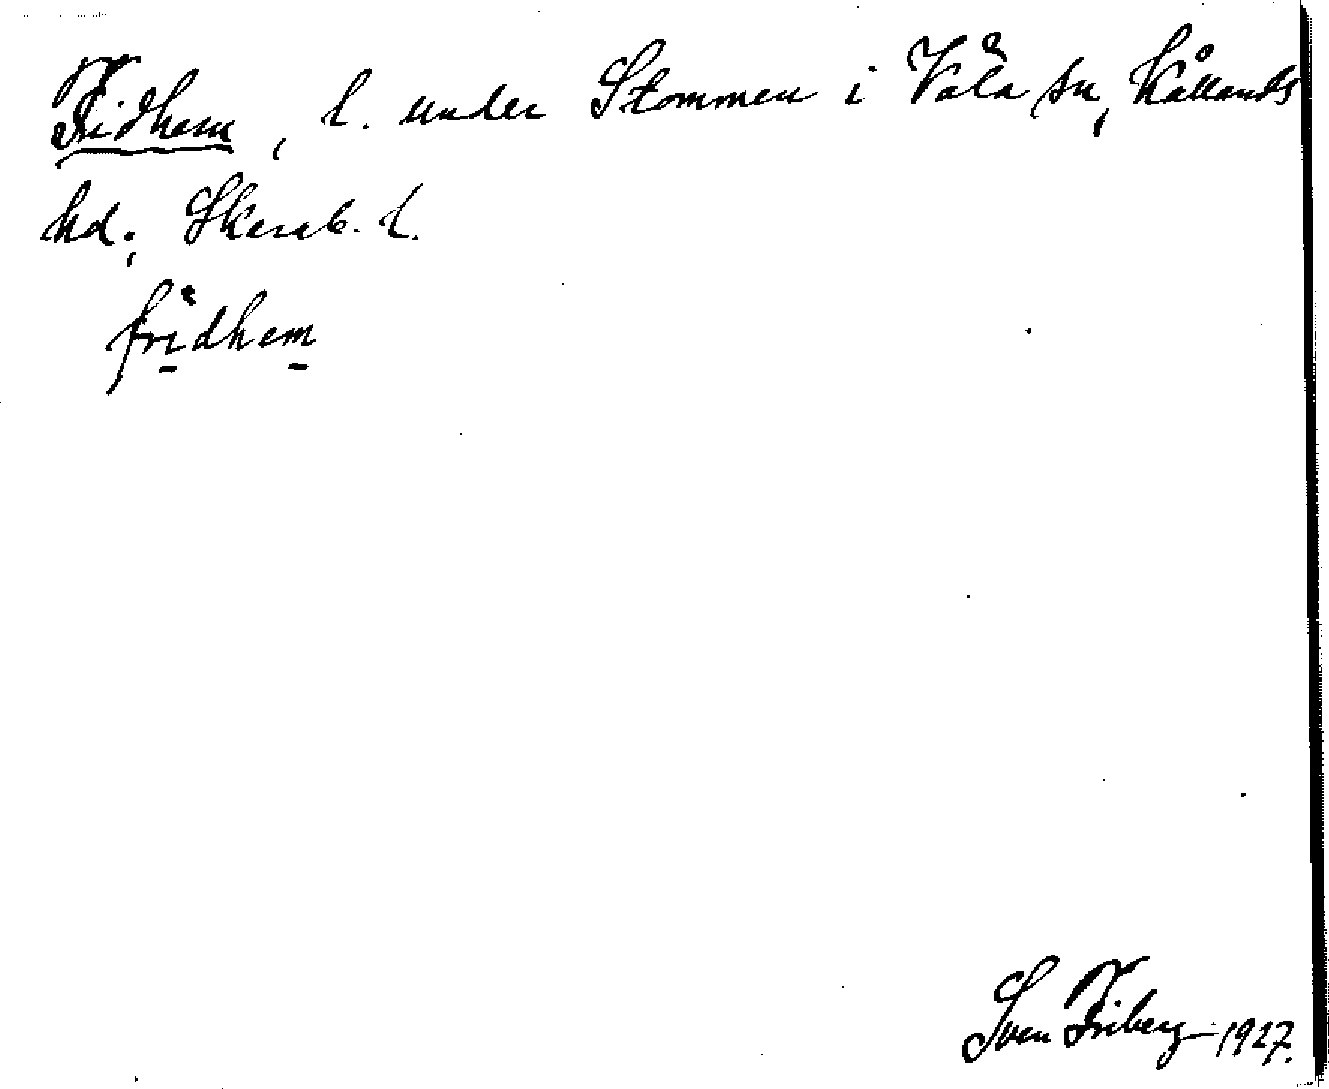 Fridhem, l. under Stommen i Våla sn, Kållands
hd., Skarab. l.
fridhem
Sven Friberg 1927.